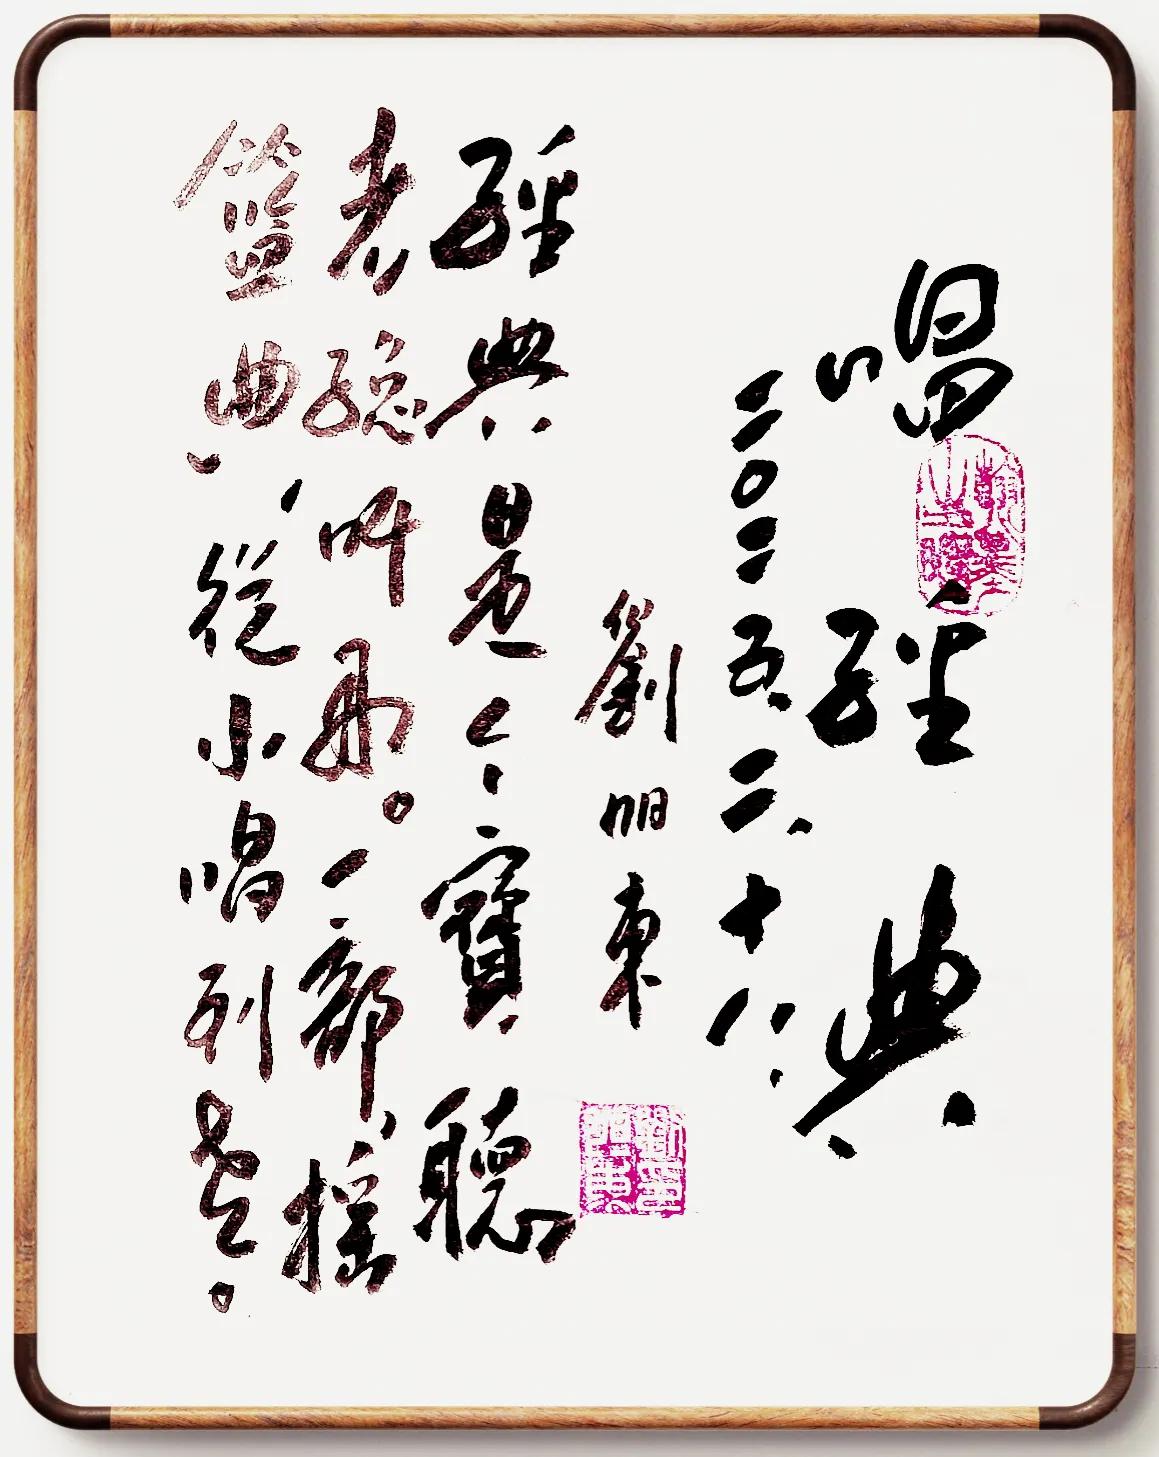 唱經典
二〇二五、二、十八、
劉明東
經典是个寶聽
總叫好。一部搖
籃曲、從小唱到老。